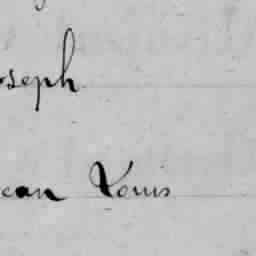 oseph
ean Louis